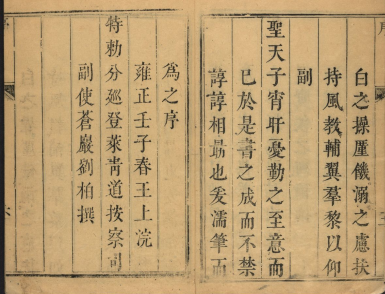 白之操厪饑溺之慮扶
持風教輔翼羣黎以仰
副
聖天子宵旰憂勤之至意而
已於是書之成而不禁
諄諄相勗也爰濡筆而
為之序
雍正壬子春王上浣
特勅分廵登萊靑道按察司
副使蒼巖劉柏撰